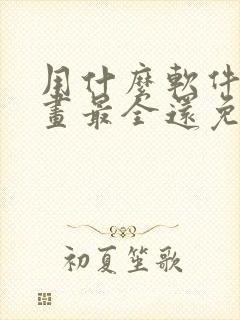 用什麼軟件
畫最全還免
初夏笙歌